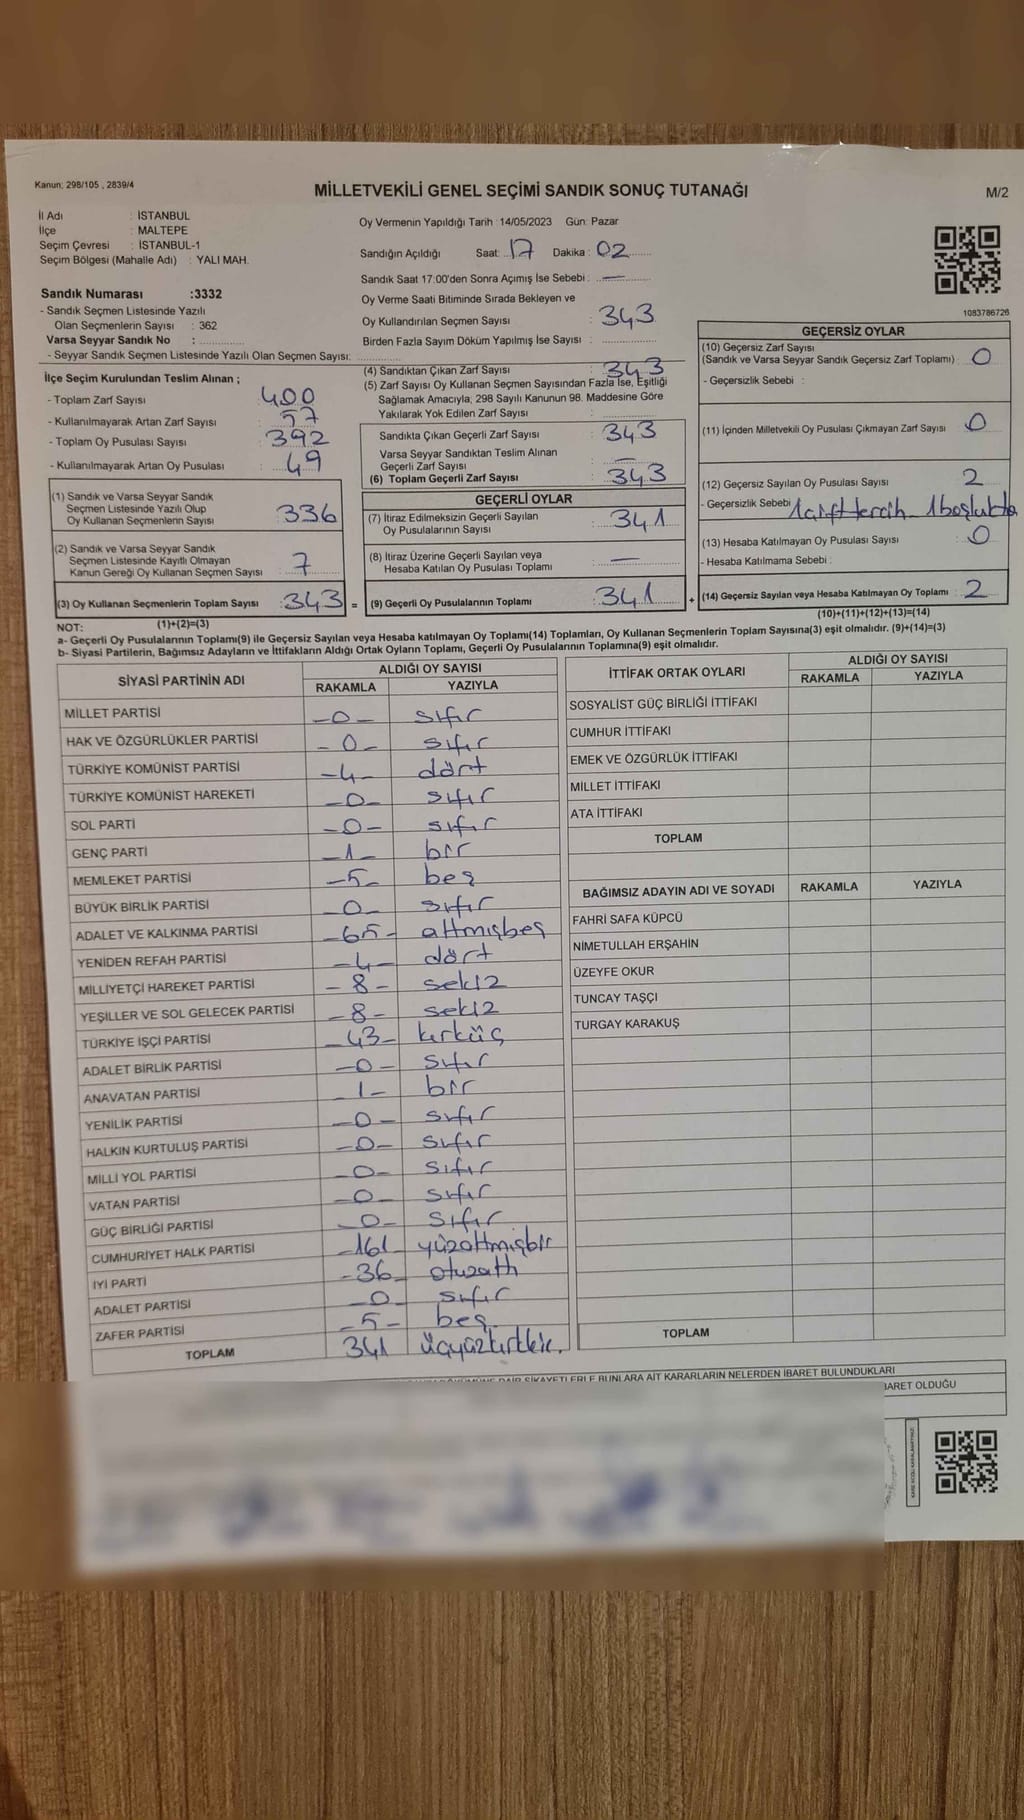 Kanun: 298/105 , 2839/4
MİLLETVEKİLİ GENEL SEÇİMİ SANDIK SONUÇ TUTANAĞI
M/2
İl Adı : İSTANBUL
İlçe : MALTEPE
Seçim Çevresi : İSTANBUL-1
Seçim Bölgesi (Mahalle Adı) : YALI MAH.
Oy Vermenin Yapıldığı Tarih :14/05/2023 Gün: Pazar
Sandığın Açıldığı Saat: 17 Dakika : 02
Sandık Saat 17:00'den Sonra Açımış İse Sebebi : —
Oy Verme Saati Bitiminde Sırada Bekleyen ve
Oy Kullandırılan Seçmen Sayısı : 343
Birden Fazla Sayım Döküm Yapılmış İse Sayısı :
Sandık Numarası :3332
- Sandık Seçmen Listesinde Yazılı
Olan Seçmenlerin Sayısı : 362
Varsa Seyyar Sandık No :
- Seyyar Sandık Seçmen Listesinde Yazılı Olan Seçmen Sayısı:
1083786726
İlçe Seçim Kurulundan Teslim Alınan ;
- Toplam Zarf Sayısı : 400
- Kullanılmayarak Artan Zarf Sayısı : 57
- Toplam Oy Pusulası Sayısı : 392
- Kullanılmayarak Artan Oy Pusulası : 49
(1) Sandık ve Varsa Seyyar Sandık
Seçmen Listesinde Yazılı Olup
Oy Kullanan Seçmenlerin Sayısı : 336
(2) Sandık ve Varsa Seyyar Sandık
Seçmen Listesinde Kayıtlı Olmayan
Kanun Gereği Oy Kullanan Seçmen Sayısı : 7
(3) Oy Kullanan Seçmenlerin Toplam Sayısı : 343 =
(1)+(2)=(3)
(4) Sandıktan Çıkan Zarf Sayısı : 343
(5) Zarf Sayısı Oy Kullanan Seçmen Sayısından Fazla İse, Eşitliği
Sağlamak Amacıyla; 298 Sayılı Kanunun 98. Maddesine Göre
Yakılarak Yok Edilen Zarf Sayısı :
Sandıkta Çıkan Geçerli Zarf Sayısı : 343
Varsa Seyyar Sandıktan Teslim Alınan
Geçerli Zarf Sayısı : —
(6) Toplam Geçerli Zarf Sayısı : 343
GEÇERLİ OYLAR
(7) İtiraz Edilmeksizin Geçerli Sayılan
Oy Pusulalarının Sayısı : 341
(8) İtiraz Üzerine Geçerli Sayılan veya
Hesaba Katılan Oy Pusulası Toplamı : —
(9) Geçerli Oy Pusulalarının Toplamı : 341 +
GEÇERSİZ OYLAR
(10) Geçersiz Zarf Sayısı
(Sandık ve Varsa Seyyar Sandık Geçersiz Zarf Toplamı) : 0
- Geçersizlik Sebebi :
(11) İçinden Milletvekili Oy Pusulası Çıkmayan Zarf Sayısı : 0
(12) Geçersiz Sayılan Oy Pusulası Sayısı : 2
- Geçersizlik Sebebi 1 çift tercih 1 boşlukta
(13) Hesaba Katılmayan Oy Pusulası Sayısı : 0
- Hesaba Katılmama Sebebi :
(14) Geçersiz Sayılan veya Hesaba Katılmayan Oy Toplamı : 2
(10)+(11)+(12)+(13)=(14)
NOT:
a- Geçerli Oy Pusulalarının Toplamı(9) ile Geçersiz Sayılan veya Hesaba katılmayan Oy Toplamı(14) Toplamları, Oy Kullanan Seçmenlerin Toplam Sayısına(3) eşit olmalıdır. (9)+(14)=(3)
b- Siyasi Partilerin, Bağımsız Adayların ve İttifakların Aldığı Ortak Oyların Toplamı, Geçerli Oy Pusulalarının Toplamına(9) eşit olmalıdır.
SİYASİ PARTİNİN ADI ALDIĞI OY SAYISI
RAKAMLA YAZIYLA
MİLLET PARTİSİ -0- sıfır
HAK VE ÖZGÜRLÜKLER PARTİSİ -0- sıfır
TÜRKİYE KOMÜNİST PARTİSİ -4- dört
TÜRKİYE KOMÜNİST HAREKETİ -0- sıfır
SOL PARTİ -0- sıfır
GENÇ PARTİ -1- bir
MEMLEKET PARTİSİ -5- beş
BÜYÜK BİRLİK PARTİSİ -0- sıfır
ADALET VE KALKINMA PARTİSİ -65- altmışbeş
YENİDEN REFAH PARTİSİ -4- dört
MİLLİYETÇİ HAREKET PARTİSİ -8- sekiz
YEŞİLLER VE SOL GELECEK PARTİSİ -8- sekiz
TÜRKİYE İŞÇİ PARTİSİ -43- kırküç
ADALET BİRLİK PARTİSİ -0- sıfır
ANAVATAN PARTİSİ -1- bir
YENİLİK PARTİSİ -0- sıfır
HALKIN KURTULUŞ PARTİSİ -0- sıfır
MİLLİ YOL PARTİSİ -0- sıfır
VATAN PARTİSİ -0- sıfır
GÜÇ BİRLİĞİ PARTİSİ -0- sıfır
CUMHURİYET HALK PARTİSİ -161- yüzaltmışbir
İYİ PARTİ -36- otuzaltı
ADALET PARTİSİ -0- sıfır
ZAFER PARTİSİ -5- beş
TOPLAM 341 üçyüzkırkbir.
İTTİFAK ORTAK OYLARI ALDIĞI OY SAYISI
RAKAMLA YAZIYLA
SOSYALİST GÜÇ BİRLİĞİ İTTİFAKI
CUMHUR İTTİFAKI
EMEK VE ÖZGÜRLÜK İTTİFAKI
MİLLET İTTİFAKI
ATA İTTİFAKI
TOPLAM
BAĞIMSIZ ADAYIN ADI VE SOYADI RAKAMLA YAZIYLA
FAHRİ SAFA KÜPCÜ
NİMETULLAH ERŞAHİN
ÜZEYFE OKUR
TUNCAY TAŞÇİ
TURGAY KARAKUŞ
TOPLAM
ŞİKAYETLERLE BUNLARA AİT KARARLARIN NELERDEN İBARET BULUNDUKLARI
İBARET OLDUĞU